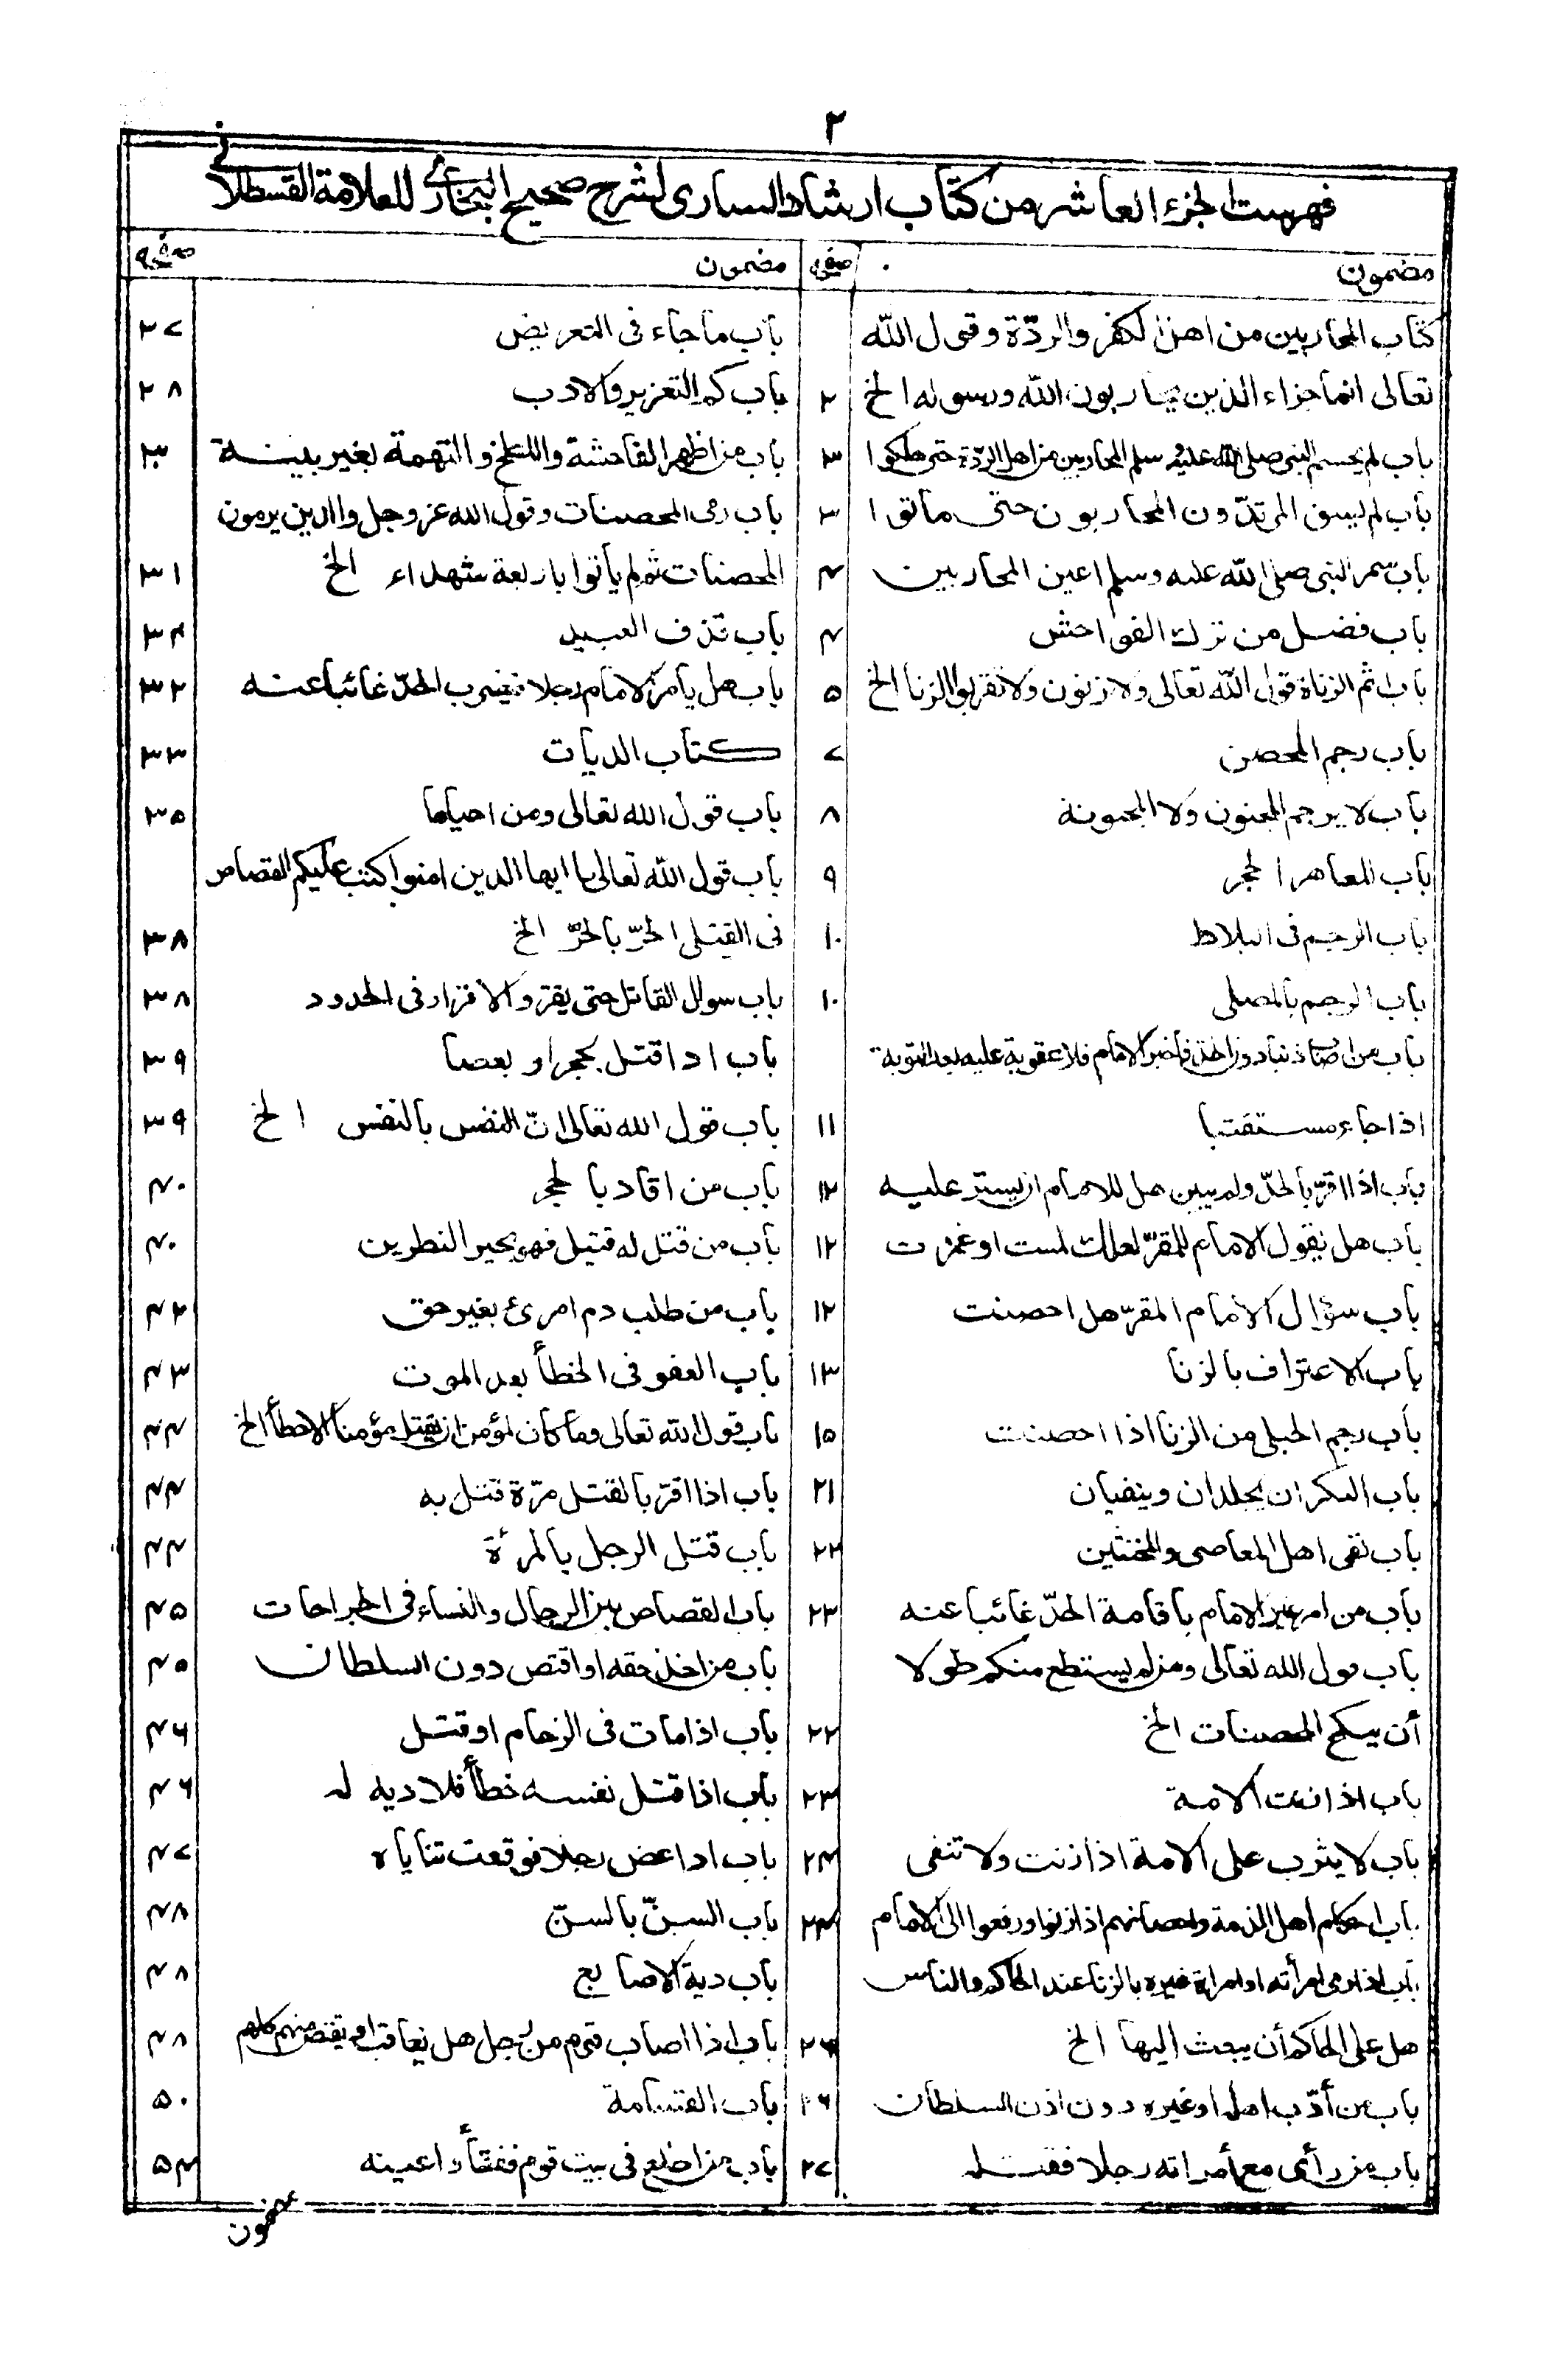 ٢
فهرست الجزء العاشر من كتاب ارشاد السارى لشرح صحيح البخارى للعلامة القسطلانى
مضمون صفحه
كتاب المحاربين من اهل الكفر والردّة وقول الله
تعالى انما جزاء الذين يحاربون الله ورسوله الخ ٢
باب لم يحسم النبى صلى الله عليه وسلم المحاربين من اهل الردّة حتى هلكوا ٣
باب لم يسق المرتدّون المحاربون حتى ماتوا ٣
باب سمر النبى صلى الله عليه وسلم اعين المحاربين ۴
باب فضل من ترك الفواحش ۴
باب اثم الزناة قول الله تعالى ولا يزنون ولا تقربوا الزنا الخ ۵
باب رجم المحصن ٧
باب لا يرجم المجنون ولا المجنونة ٨
باب للعاهر الحجر ٩
باب الرجم فى البلاط ١٠
باب الرجم بالمصلى ١٠
باب من اصاب ذنبا دون الحد فاخبر الامام فلا عقوبة عليه بعد التوبة
اذا جاء مستفتيا ١١
باب اذا اقرّ بالحدّ ولم يبين هل للامام ان يستر عليه ١٢
باب هل يقول الامام للمقرّ لعلك لمست او غمزت ١٢
باب سؤال الامام المقرّ هل احصنت ١٢
باب الاعتراف بالزنا ١٣
باب رجم الحبلى من الزنا اذا احصنت ١۵
باب البكران يجلدان وينفيان ٢١
باب نفى اهل المعاصى والمخنثين ٢٢
باب من امر غير الامام باقامة الحدّ غائبا عنه ٢٣
باب قول الله تعالى ومن لم يستطع منكم طولا
أن ينكح المحصنات الخ ٢٢
باب اذا زنت الامة ٢٣
باب لا يثرب على الامة اذا زنت ولا تنفى ٢۴
باب احكام اهل الذمة واحصانهم اذا زنوا ورفعوا الى الامام ٢۴
باب اذا رمى امرأته او امراة غيره بالزنا عند الحاكم والناس
هل على الحاكم أن يبعث اليها الخ ٢۶
باب من أدّب اهله او غيره دون اذن السلطان ٢۶
باب من رأى مع أمراته رجلا فقتله ٢٧
مضمون صفحه
باب ما جاء فى التعريض ٢٧
باب كم التعزير والادب ٢٨
باب من اظهر الفاحشة واللطخ والتهمة بغير بينة ٣٠
باب رمى المحصنات وقول الله عز وجل والذين يرمون
المحصنات ثم لم يأتوا باربعة شهداء الخ ٣١
باب قذف العبيد ٣۴
باب هل يأمر الامام رجلا فيضرب الحدّ غائبا عنه ٣٢
كتاب الديات ٣٣
باب قول الله تعالى ومن احياها ٣۵
باب قول الله تعالى يا ايها الذين امنوا كتب عليكم القصاص
فى القتلى الحرّ بالحرّ الخ ٣٨
باب سوال القاتل حتى يقرّ والاقرار فى الحدود ٣٨
باب اذا قتل بحجر او بعصا ٣٩
باب قول الله تعالى انّ النفس بالنفس الخ ٣٩
باب من اقاد بالحجر ۴٠
باب من قتل له قتيل فهو بخير النظرين ۴٠
باب من طلب دم امرئ بغير حق ۴٢
باب العفو فى الخطأ بعد الموت ۴٣
باب قول الله تعالى وما كان لمؤمن ان يقتل مؤمنا الا خطأ الخ ۴۴
باب اذا اقرّ بالقتل مرّة قتل به ۴۴
باب قتل الرجل بالمرئة ۴۴
باب القصاص بين الرجال والنساء فى الجراحات ۴۵
باب من اخذ حقه او اقتص دون السلطان ۴۵
باب اذا مات فى الزحام او قتل ۴۶
باب اذا قتل نفسه خطأ فلا دية له ۴۶
باب اذا عض رجلا فوقعت ثناياه ۴٧
باب السنّ بالسنّ ۴٨
باب دية الاصابع ۴٨
باب اذا اصاب قوم من رجل هل يعاقب او يقتص منهم كلهم ۴٨
باب القسامة ۵٠
باب من اطلع فى بيت قوم ففقأوا عينه ۵۴
مضمون